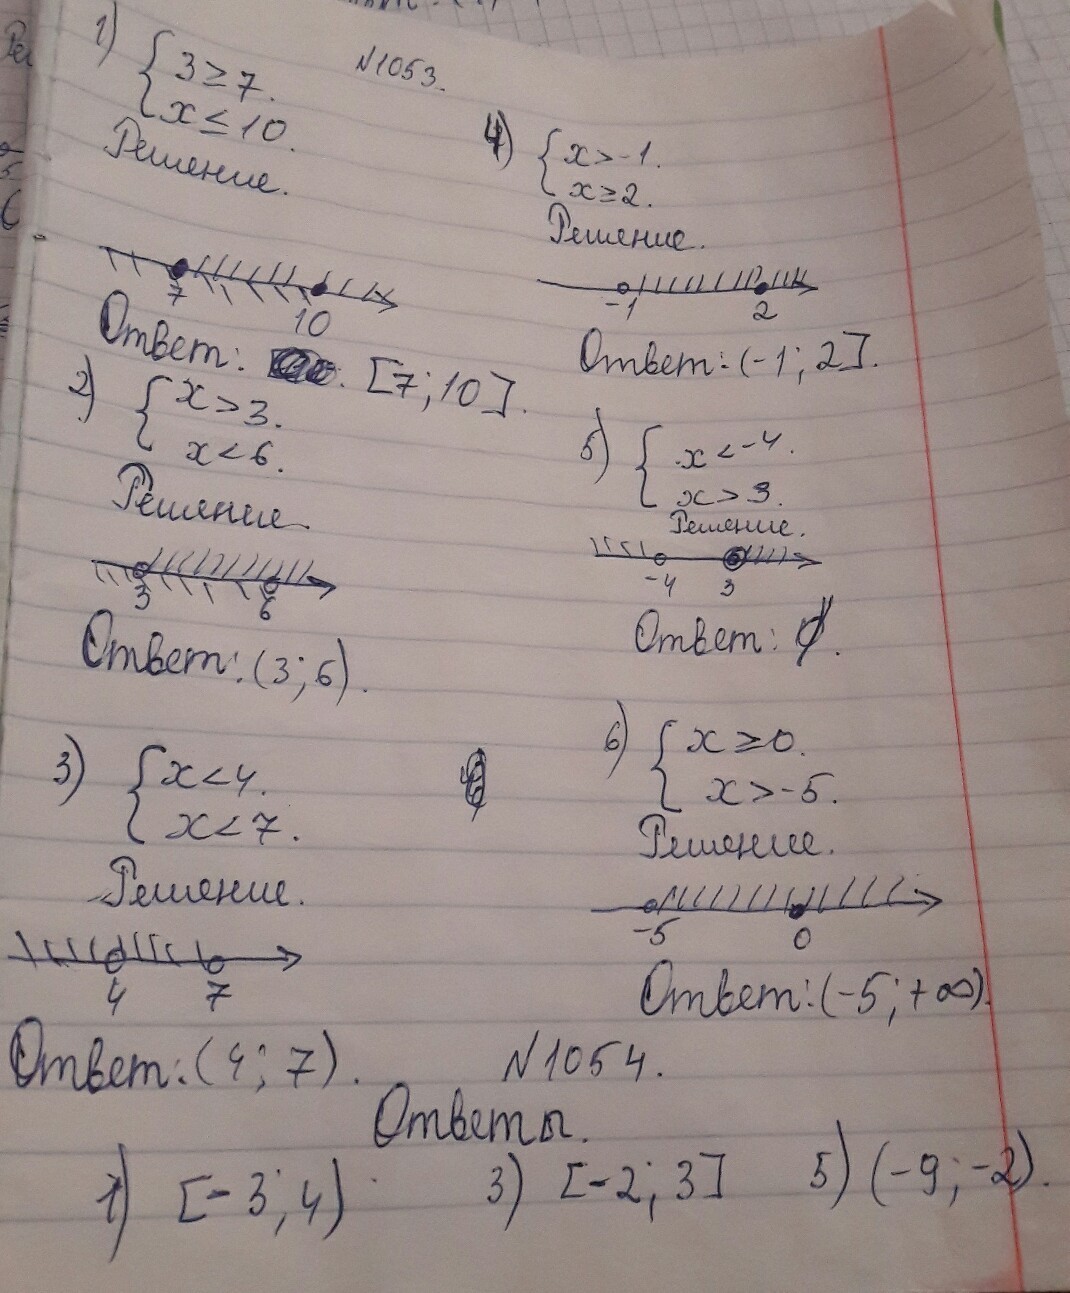 N1053.
1) { 3 ≥ 7.
x ≤ 10.
Решение.
7
10
Ответ: [7; 10].
2) { x > 3.
x < 6.
Решение.
3
6
Ответ: (3; 6).
3) { x < 4.
x < 7.
Решение.
4
7
Ответ: (4; 7).
4) { x > -1.
x ≥ 2.
Решение.
-1
2
Ответ: (-1; 2].
5) { x < -4.
x > 3.
Решение.
-4
3
Ответ: ∅.
6) { x ≥ 0.
x > -5.
Решение.
-5
0
Ответ: (-5; +∞).
N1054.
Ответы.
1) [-3; 4) 3) [-2; 3] 5) (-9; -2).